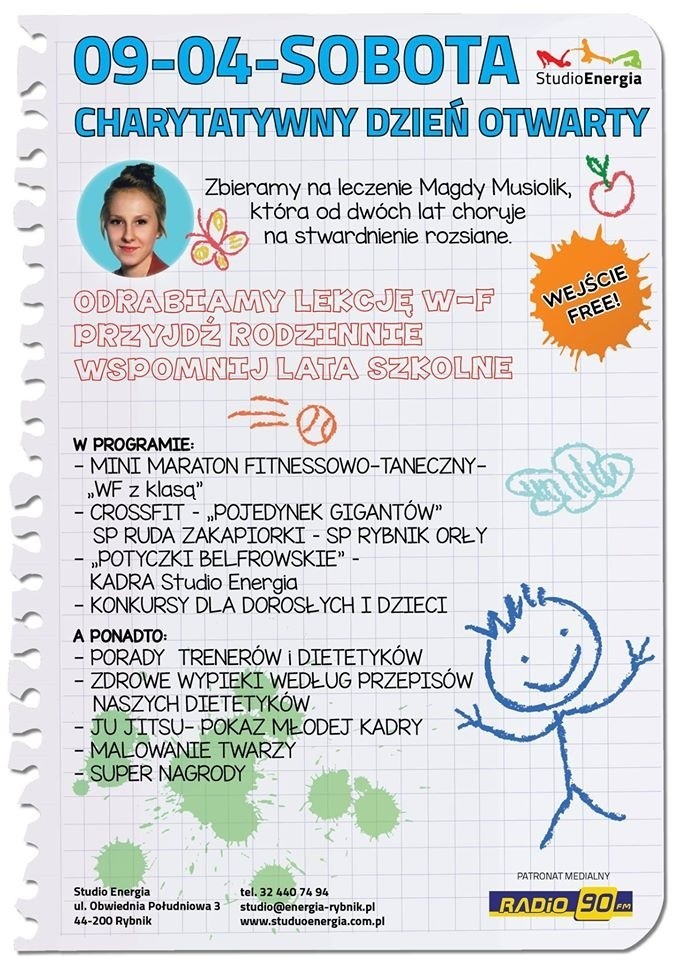 09-04-SOBOTA
StudioEnergia
CHARYTATYWNY DZIEŃ OTWARTY
Zbieramy na leczenie Magdy Musiolik,
która od dwóch lat choruje
na stwardnienie rozsiane.
WEJŚCIE
FREE!
ODRABIAMY LEKCJĘ W-F
PRZYJDŹ RODZINNIE
WSPOMNIJ LATA SZKOLNE
W PROGRAMIE:
- MINI MARATON FITNESSOWO-TANECZNY-
„WF z klasą”
- CROSSFIT - „POJEDYNEK GIGANTÓW”
SP RUDA ZAKAPIORKI - SP RYBNIK ORŁY
- „POTYCZKI BELFROWSKIE” -
KADRA Studio Energia
- KONKURSY DLA DOROSŁYCH I DZIECI
A PONADTO:
- PORADY TRENERÓW i DIETETYKÓW
- ZDROWE WYPIEKI WEDŁUG PRZEPISÓW
NASZYCH DIETETYKÓW
- JU JITSU- POKAZ MŁODEJ KADRY
- MALOWANIE TWARZY
- SUPER NAGRODY
Studio Energia
ul. Obwiednia Południowa 3
44-200 Rybnik
tel. 32 440 74 94
studio@energia-rybnik.pl
www.studuoenergia.com.pl
PATRONAT MEDIALNY
RADIO 90 FM